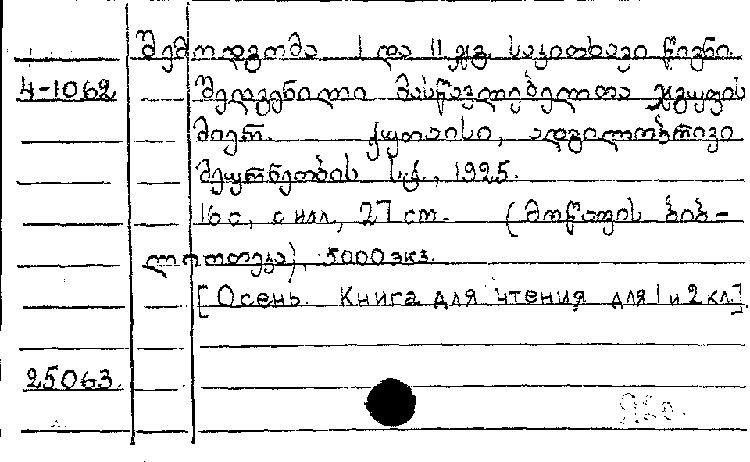 შემოდგომა I და II ჯგ. საკითხავი წიგნი.
4-1062 შედგენილი მასწავლებელთა ჯგუფის
მიერ. ქუთაისი, ადგილობრივი
მეურნეობის სტ., 1925.
16 с, с илл, 27 cm. (მოწაფის ბიბ-
ლიოთეკა), 5000 экз.
[Осень. Книга для чтения для 1 и 2 кл.]
25063.